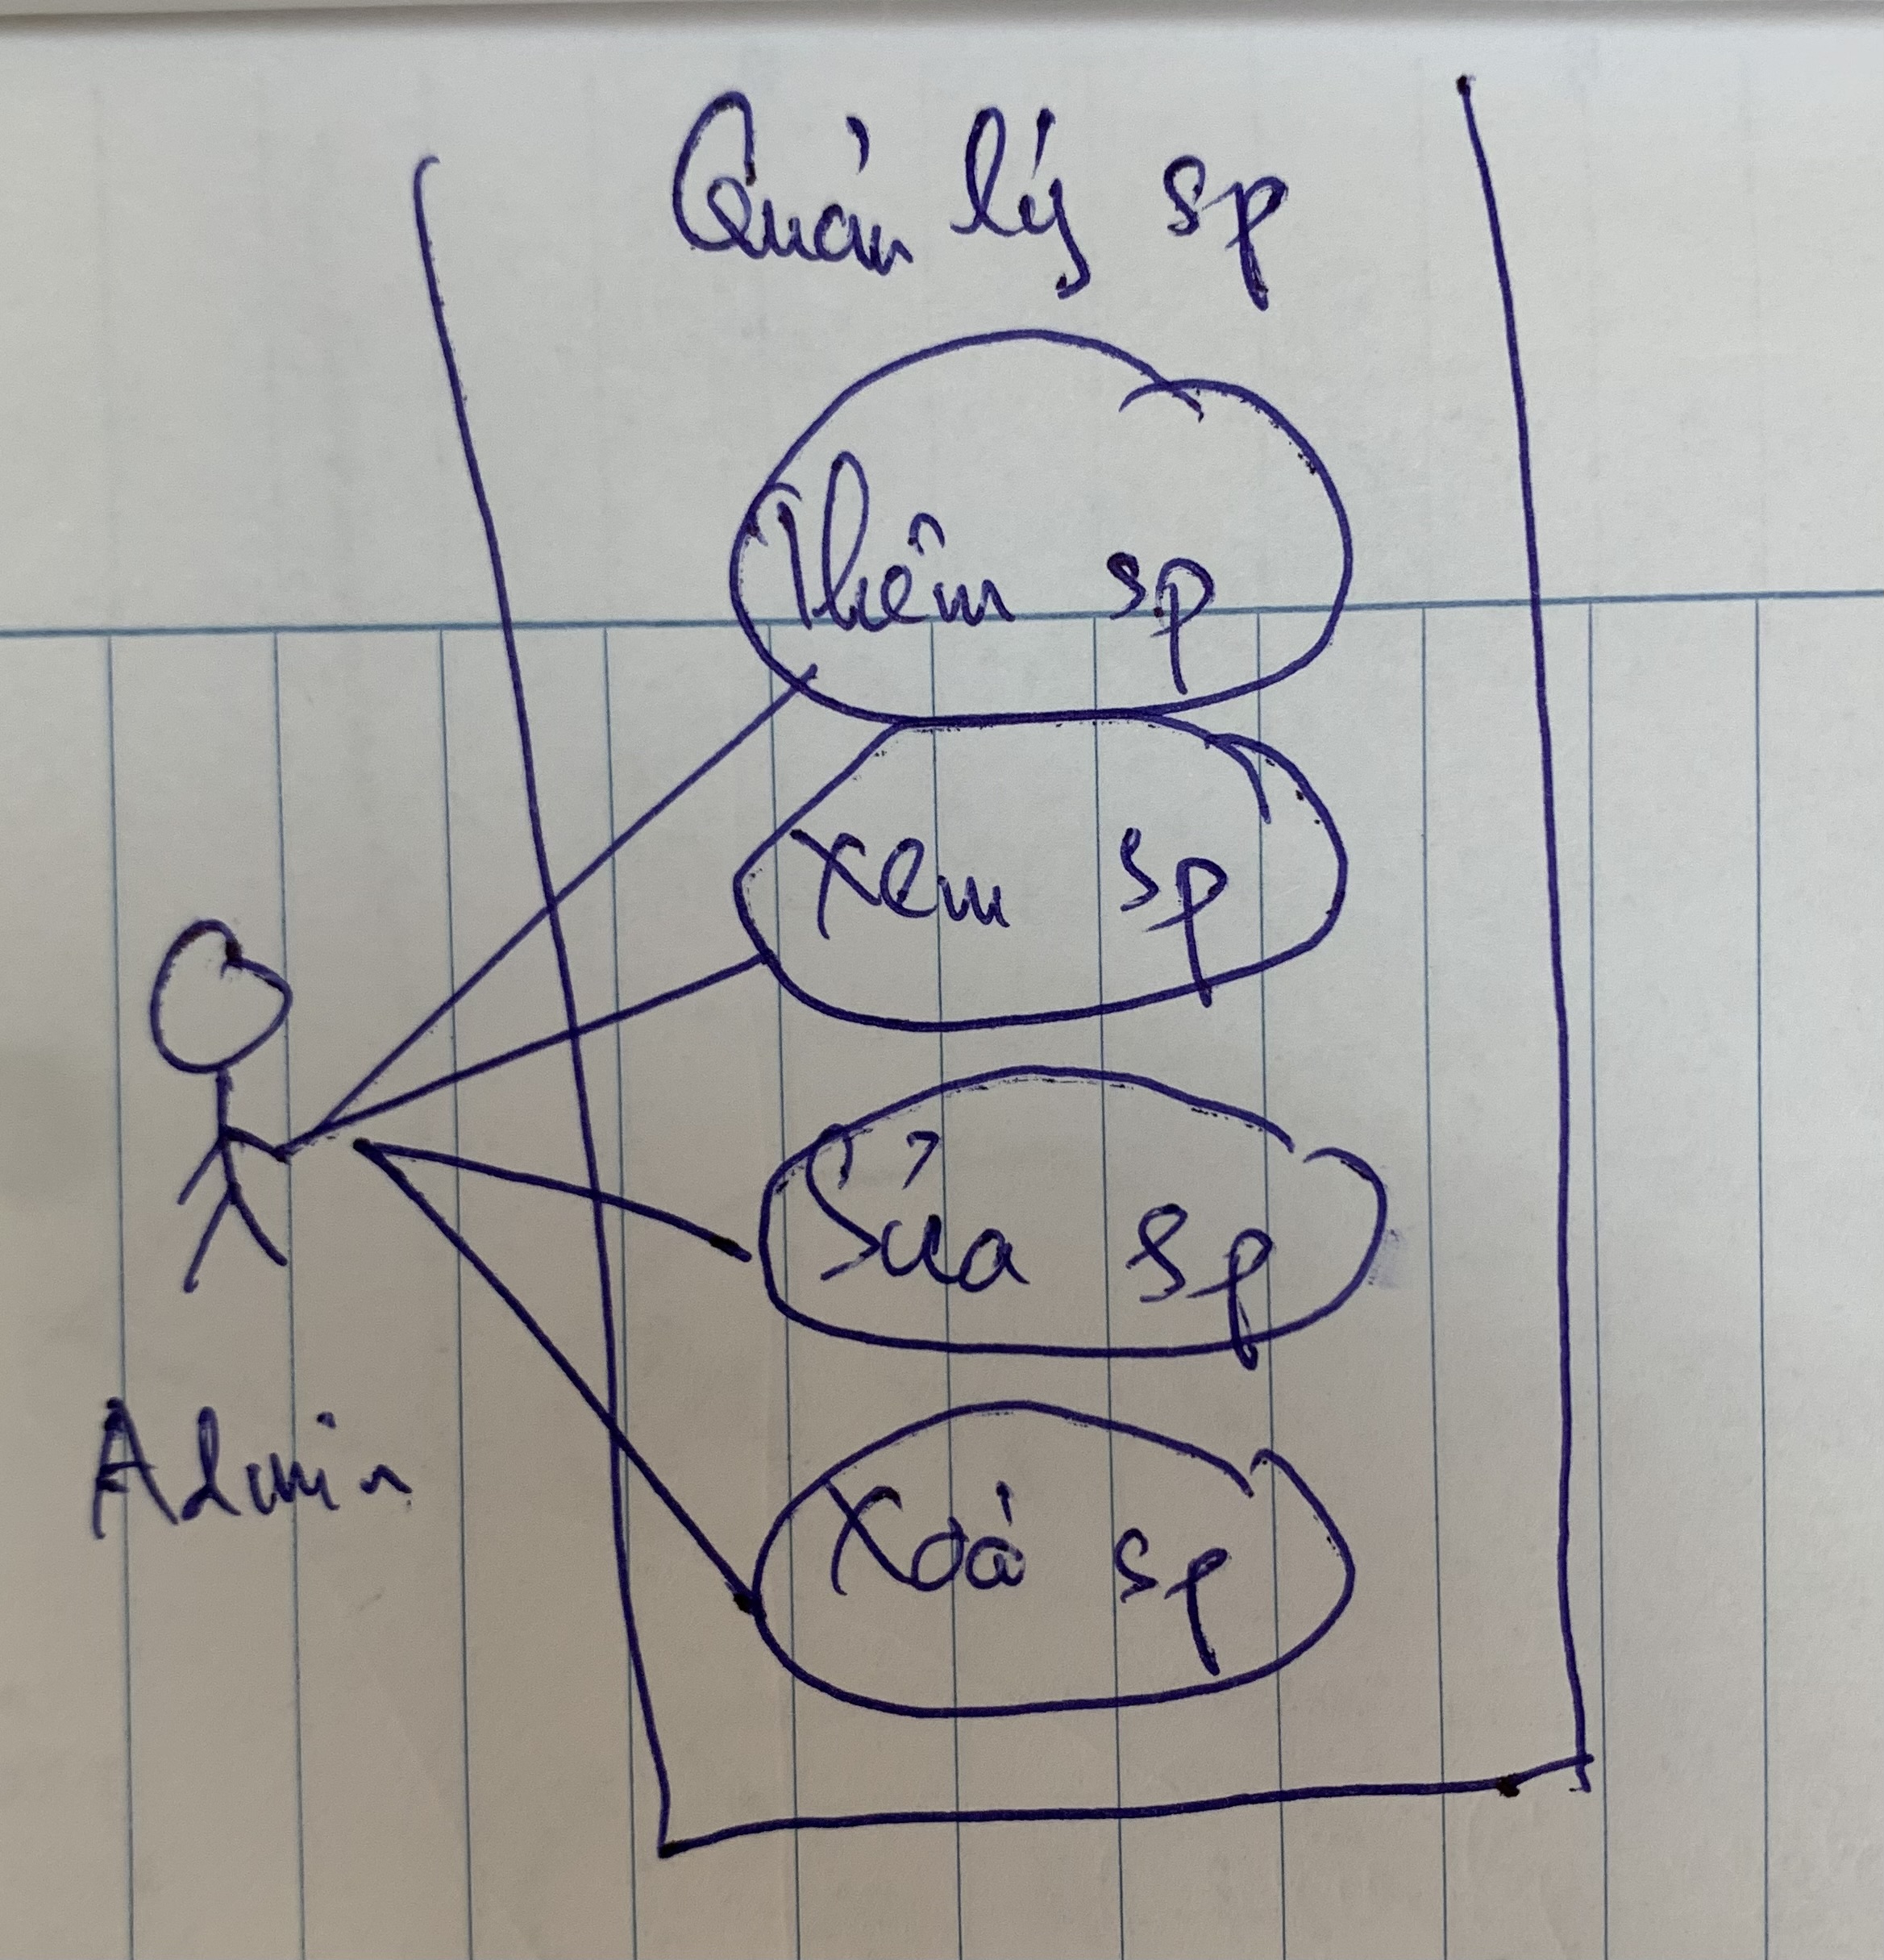 Quản lý sp
Thêm sp
Xem sp
Sửa sp
Xoá sp
Admin